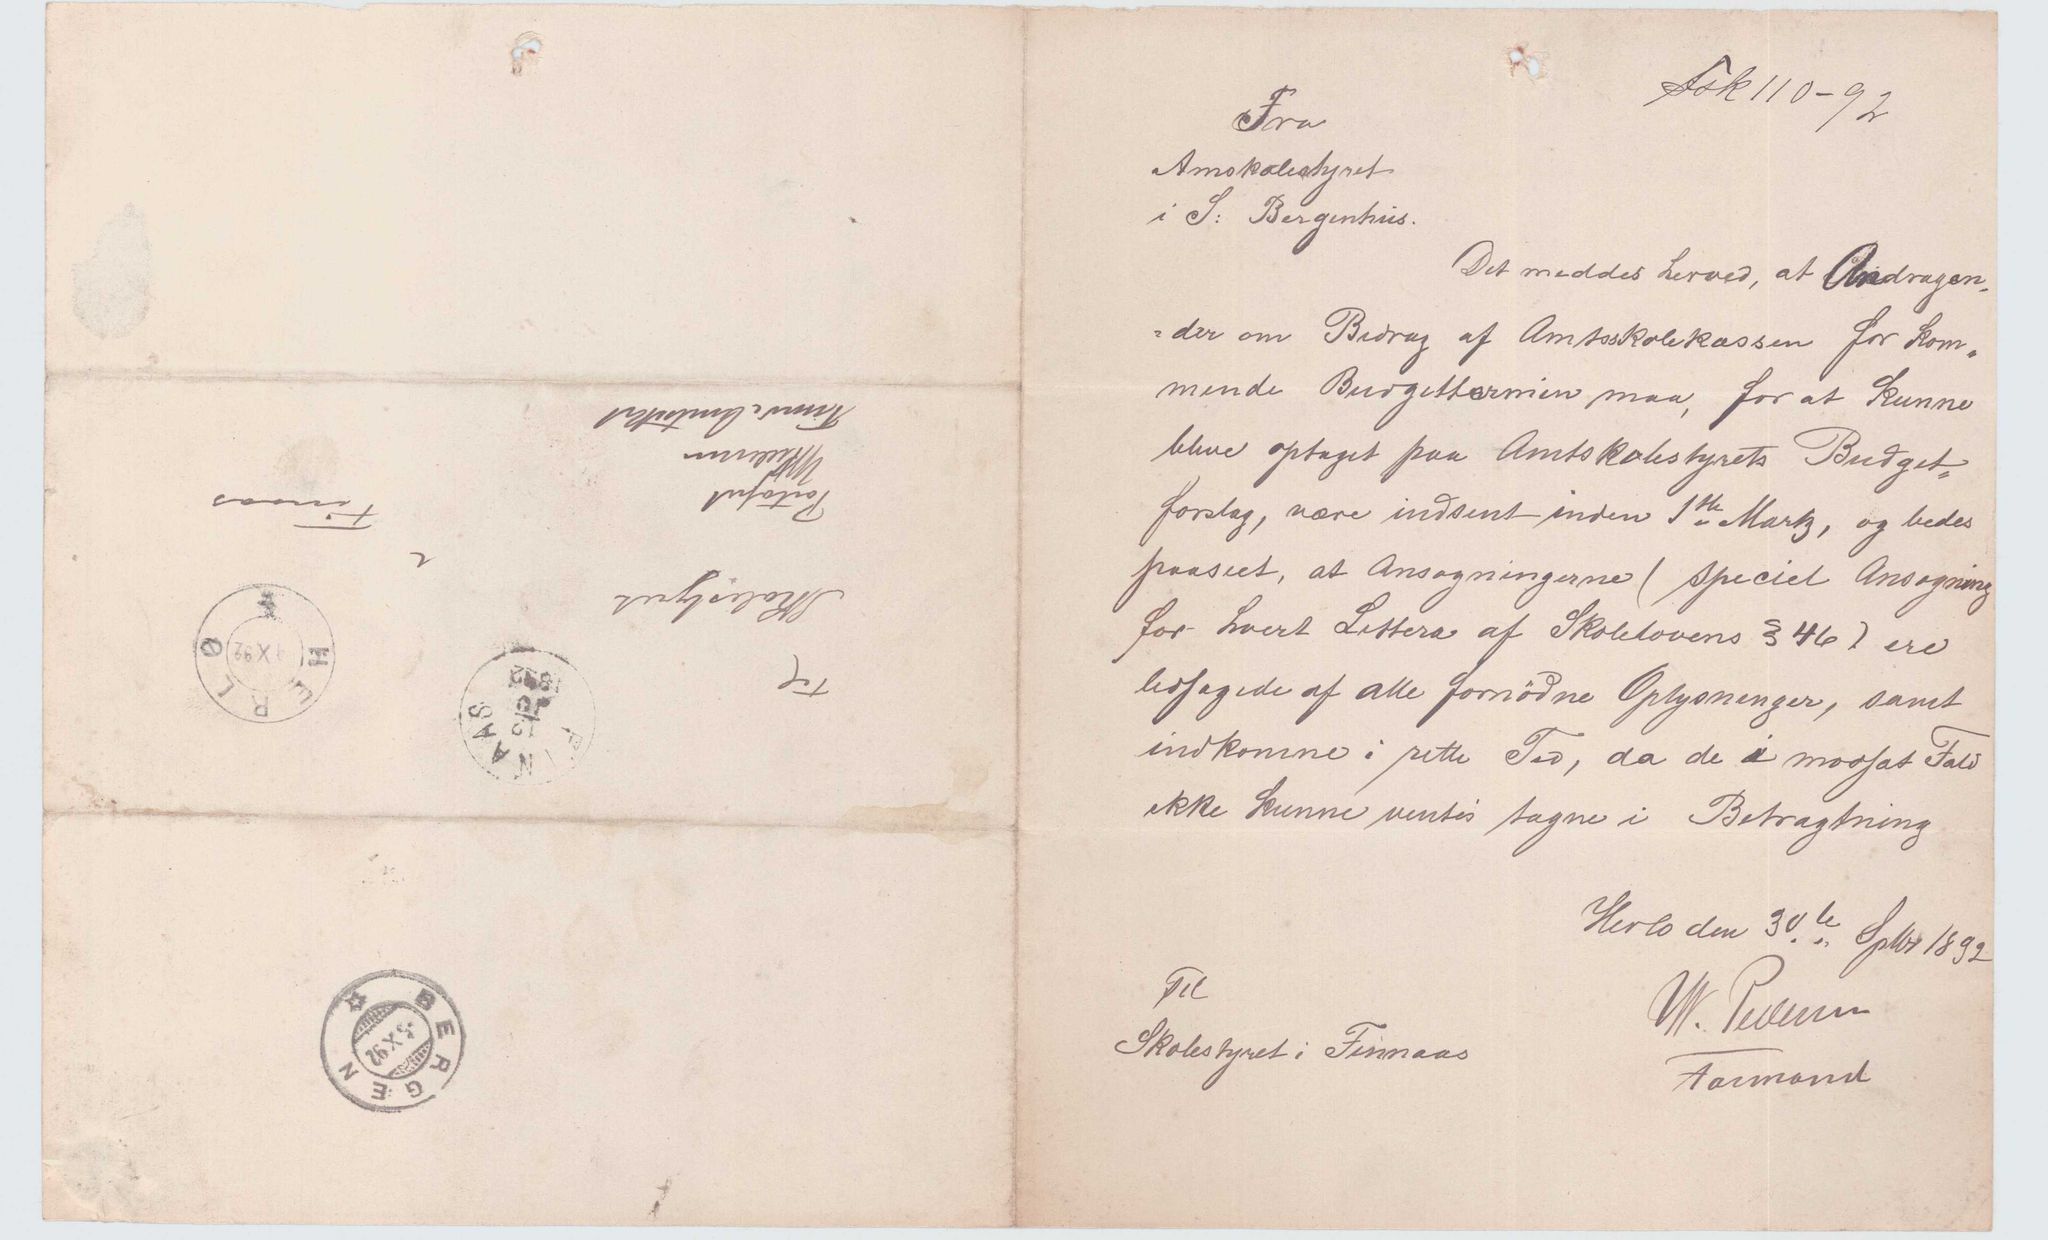 Ask 110-92
Fra
Amskolestyret
i S: Bergenhus.
Det meddes herved, at Andragen-
=der om Bidrag af Amtsskolekassen for kom-
mende Budgettermien maa, for at kunne
blive optaget paa Amtskolestyrets Budget=
forslag, være indsent inden 1ste Martz, og bedes
paaseet, at Ansøgningerne ( speciel Ansøgning
for hvert Littera af Skolelovens § 46 ) ere
ledsagede af alle fornödne Oplysninger, samt
indkomne i rette Tid, da de i modsat Fald
ikke kunne ventes tagne i Betragtning
Herlø den 30te Sptbr 1892
W. Pedersen
Formand
Til
Skolestyret i Finnaas
Til
Skolestyret
i
Finaas
Portofrit
WPedersen
HERLØ
X 92
FINAAS
1892
BERGEN
5 X 92